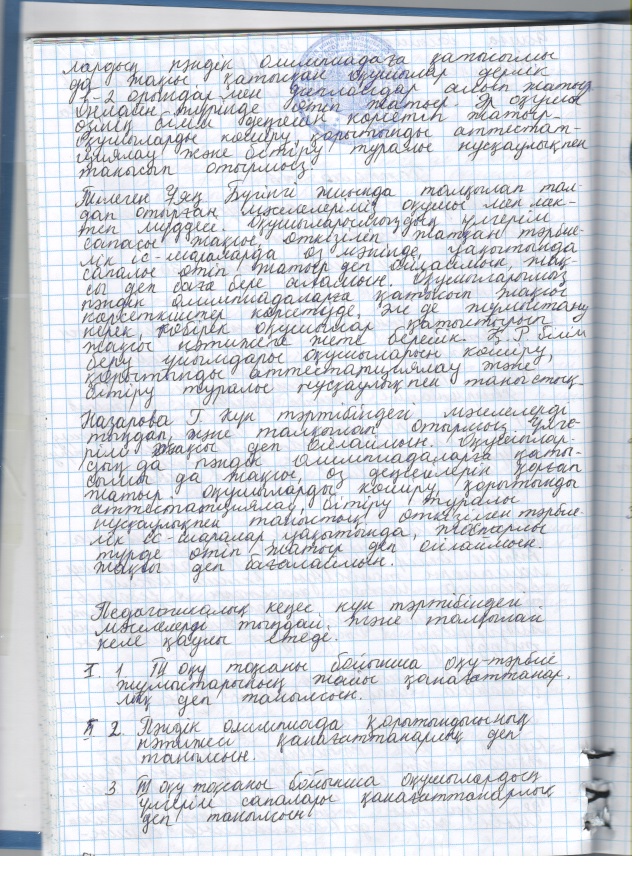 лардың пәндік олимпиадаға қатысымы
да жақсы қатысқан оқушылар дерлік
1-2 орындар мен дипломдар алып жатыр
Онлайн-түрінде өтіп жатыр. Әр оқушы
өзінің білім деңгейін көрсетіп жатыр.
Оқушыларды көшіру, қорытынды аттестат-
циялау және бітіру туралы нұсқаулықпен
танысып отырмыз.
Тілеген Ұяң Бүгінгі жиында талқылап тал-
дап отырған мәселелеріміз оқушы мен мек-
теп мүддесі. Оқушыларымыздың үлгерім
сапасы жақсы, өткізіліп жатқан тәрбие-
лік іс-шараларда өз мәнінде, уақытында
сапалы өтіп жатыр деп ойлаймын. Жақ-
сы деп баға бере аламын. Оқушыларымыз
пәндік олимпиадаларға қатысып жақсы
көрсеткіштер көрсетуде, әлі де жұмыстану
керек, көбірек оқушылар қатыстырып
жақсы нәтижеге жете береміз. Қ.Р білім
беру ұйымдары оқушыларын көшіру,
қорытынды аттестатциялау және
бітіру туралы нұсқаулықпен таныстық.
Назарова Г. Күн тәртібіндегі мәселелерді
тыңдап, және талқылап отырмыз. Үлге-
рім жақсы деп ойлаймын. Оқушылар-
дың да пәндік олимпиадаларға қаты-
сымы да жақсы, өз деңгейлерін қорғап
жатыр. Оқушыларды көшіру, қорытынды
аттестатциялау, бітіру туралы
нұсқаулықпен таныстық. Өткізілген тәрбие-
лік іс-шаралар уақытында, жоспарлы
түрде өтіп жатыр деп ойлаймын.
Жақсы деп бағалаймын.
Педагогикалық кеңес күн тәртібіндегі
мәселелерді тыңдай және талқылай
келе қаулы етеді.
I. 1 III оқу тоқсаны бойынша оқу-тәрбие
жұмыстарының жайы қанағаттанар-
лық деп танылсын.
2. Пәндік олимпиада қорытындысының
нәтижесі қанағаттанарлық деп
танылсын.
3 III оқу тоқсаны бойынша оқушылардың
үлгерім сапалары қанағаттанарлық
деп танылсын